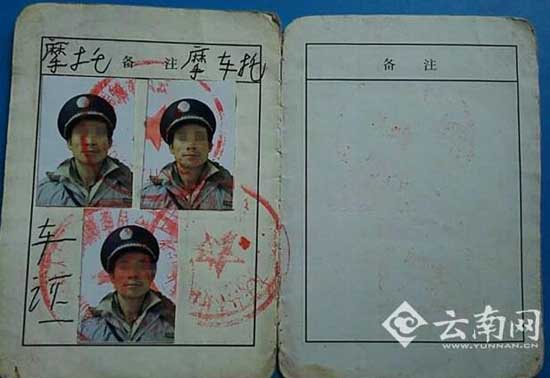 摩托 备 注 摩 车托
车
证
备 注
云南网
WWW.YUNNAN.CN